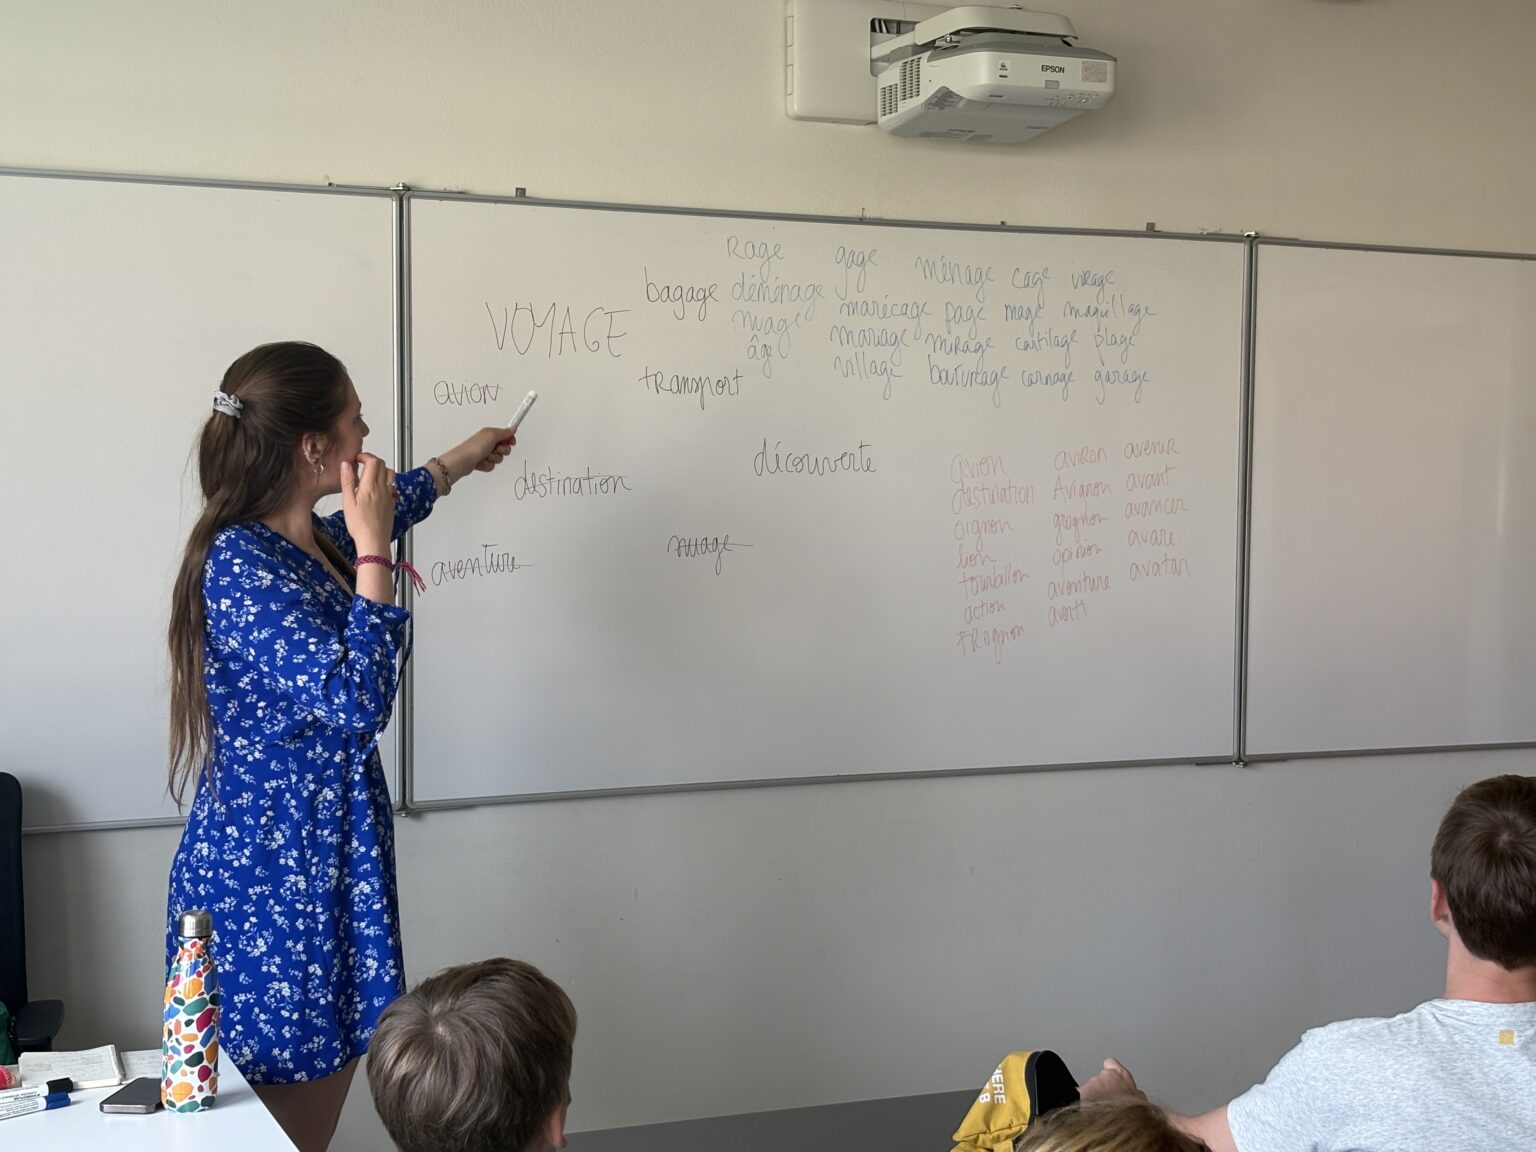 EPSON
EPSON
VOYAGE
avion
destination
aventure
bagage
transport
découverte
nuage
Rage gage ménage cage virage
déménage marécage page mage maquillage
nuage mariage mirage cartilage plage
âge village carnage garage
avion aviron avenir
destination Avignon avant
oignon grognon avancer
lion opinion avare
tourbillon aventure avatar
action averti